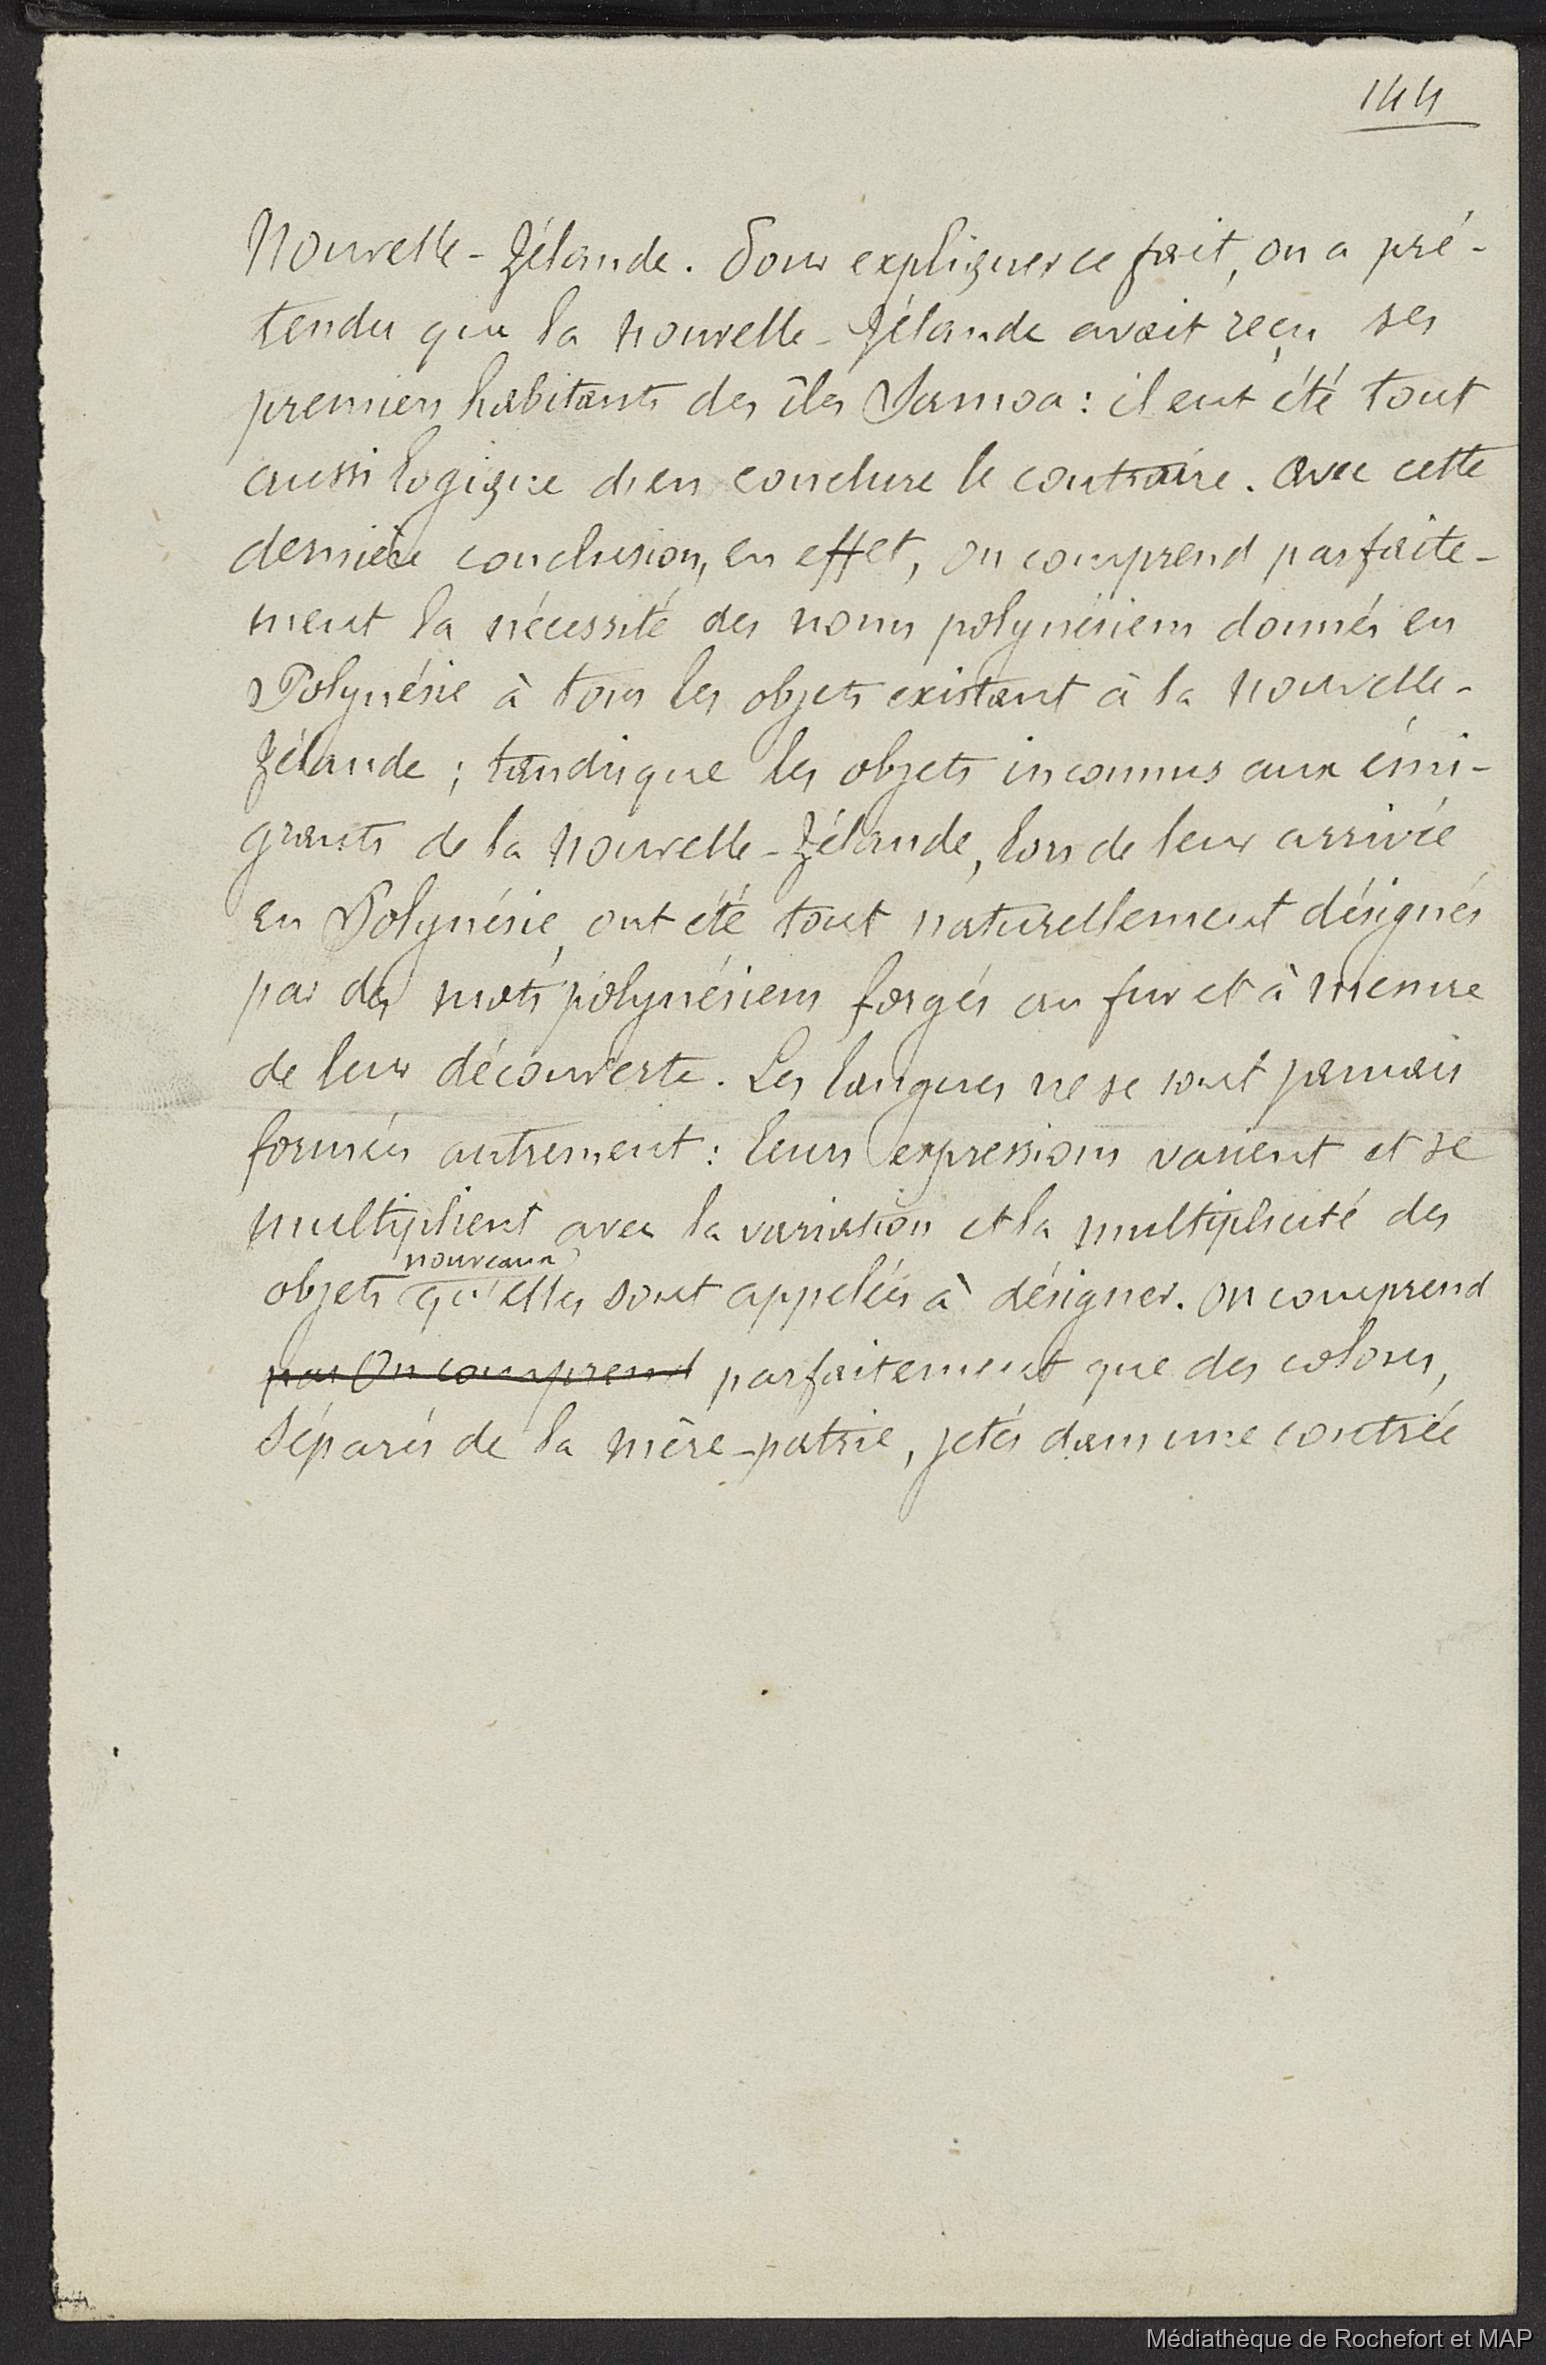 144
Nouvelle-Zélande. Pour expliquer ce fait, on a pré-
tendu que la Nouvelle-Zélande avait reçu ses
premiers habitants des îles Samoa : il eut été tout
aussi logique d'en conclure le contraire. Avec cette
dernière conclusion, en effet, on comprend parfaite-
ment la nécessité des noms polynésiens donnés en
Polynésie à tous les objets existant à la Nouvelle-
Zélande ; tandis que les objets inconnus aux émi-
grants de la Nouvelle-Zélande, lors de leur arrivée
en Polynésie, ont été tout naturellement désignés
par des mots polynésiens forgés au fur et à mesure
de leur découverte. Les langues ne se sont jamais
formées autrement : leurs expressions varient et se
multiplient avec la variation et la multiplicité des
nouveaux
objets qu'elles sont appelées à désigner. On comprend
par On comprend parfaitement que des colons,
séparés de la mère-patrie, jetés dans une contrée
Médiathèque de Rochefort et MAP